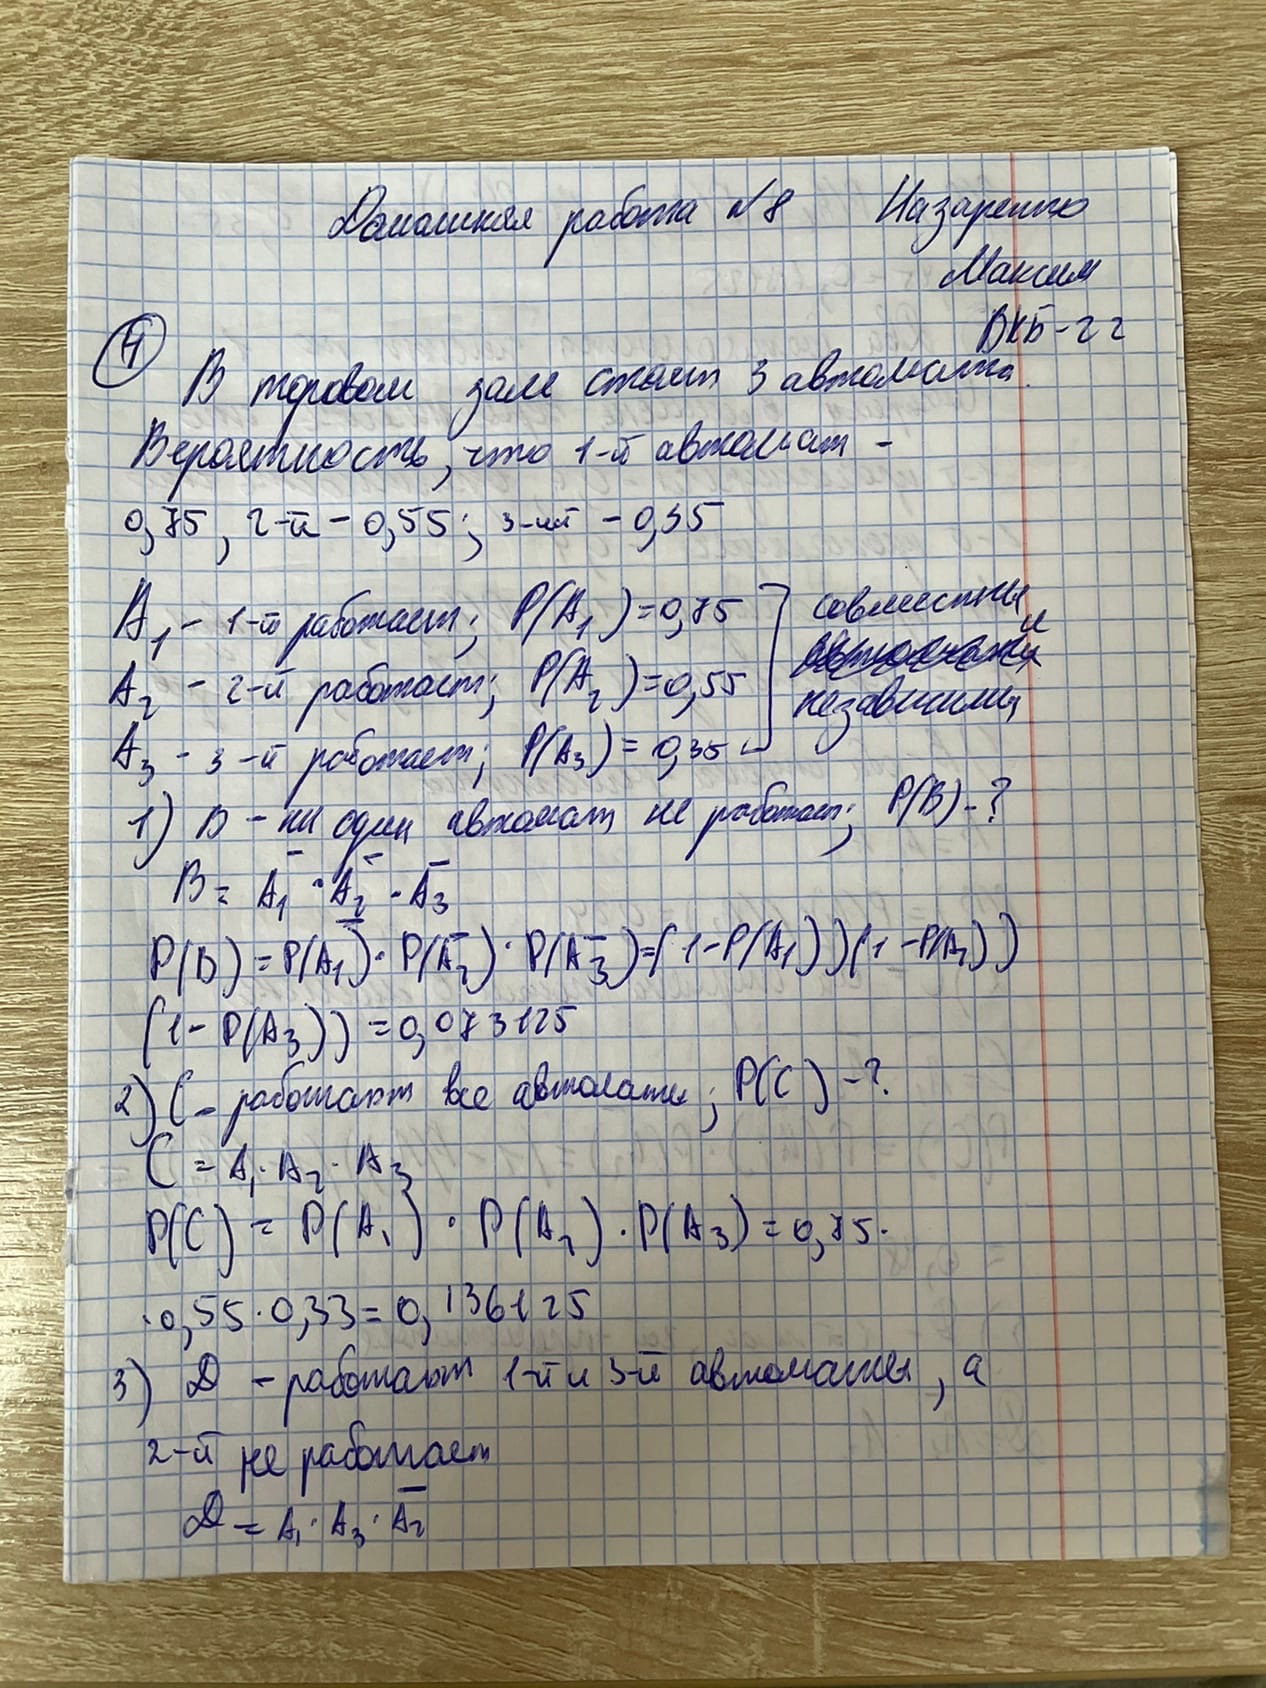 Домашняя работа №8 Назаренко
Максим
ВКБ-22
4
В торговом зале стоит 3 автомата.
Вероятность, что 1-й автомат -
0,75, 2-й - 0,55; 3-ий - 0,35
A₁ - 1-й работает; P(A₁)=0,75 совместны и
A₂ - 2-й работает; P(A₂)=0,55 независимы
A₃ - 3-й работает; P(A₃)=0,35
1) B - ни один автомат не работает; P(B)-?
B = A̅₁ · A̅₂ · A̅₃
P(B) = P(A̅₁) · P(A̅₂) · P(A̅₃)=(1-P(A₁))(1-P(A₂))
(1-P(A₃)) = 0,073125
2) C - работают все автоматы; P(C) -?
C = A₁ · A₂ · A₃
P(C) = P(A₁) · P(A₂) · P(A₃) = 0,75·
·0,55·0,33=0,136125
3) D - работают 1-й и 3-й автоматы, а
2-й не работает
D = A₁ · A₃ · A̅₂